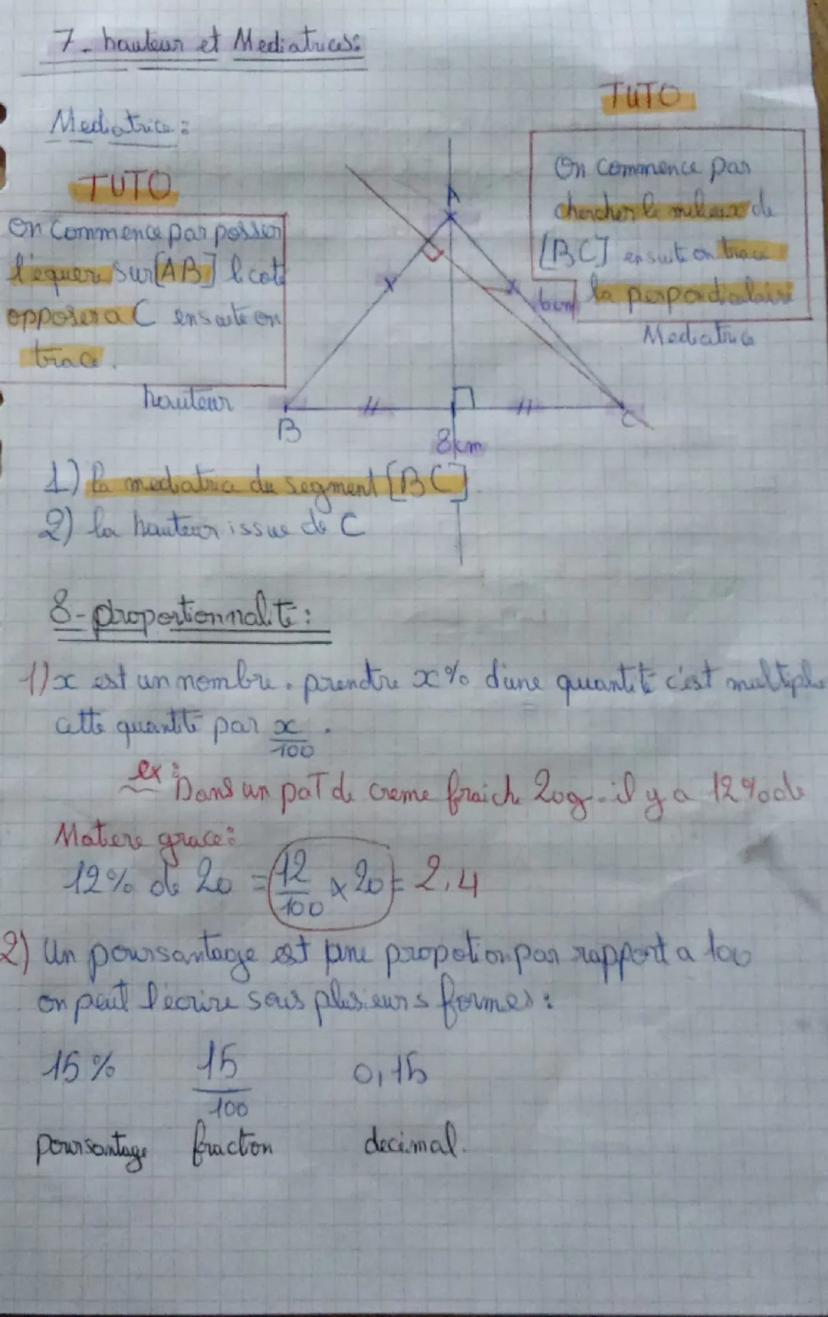 7- hauteur et Mediatrices:
Mediatrice:
TUTO
On commence par posser
l'equerr sur [AB] le cote
opposer a C ensuite on
trace.
hauteur
TUTO
On commence par
chercher le milieux de
[BC] ensuite on trace
la perpendiculaire
Mediatrice
A
B
C
8cm
1) la mediatrice du segment [BC]
2) la hauteur issue de C
8- proportionnalité:
1) x est un nombre. prendre x% d'une quantité c'est multiplie
cette quantité par x/100.
ex: Dans un pot de creme fraiche 20g. il y a 12% de
Matiere grace:
12% de 20 = 12/100 x 20 = 2,4
2) Un poursantage est une propotion par rapport a 100
on peut l'écrire sous plusieurs formes:
15% 15/100 0,15
poursantage fraction decimal.